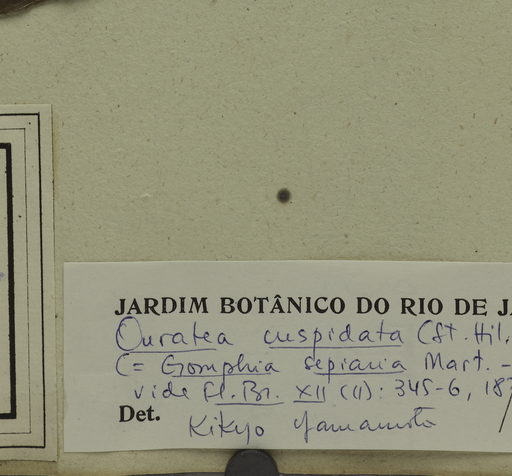 JARDIM BOTÂNICO DO RIO DE JA
Ouratea cuspidata (St. Hil.
(= Gomphia sepiaria Mart. -
vide Fl. Br. XII (II): 345-6, 18
Det. Kikyo Yamamoto